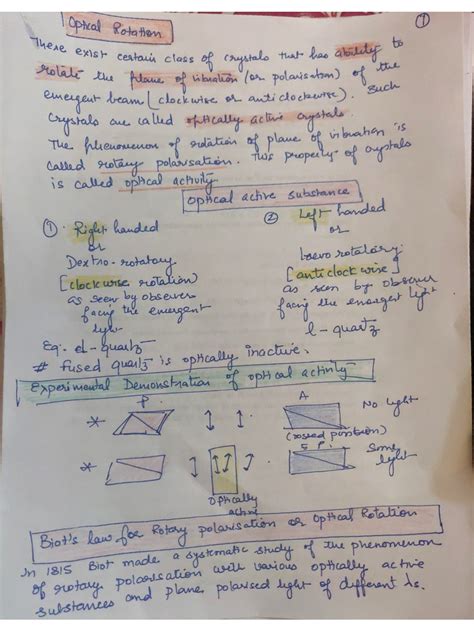 ①
Optical Rotation
There exist certain class of crystals that has ability to
rotate the plane of vibration (or polarisation) of the
emergent beam (clockwise or anticlockwise). Such
crystals are called optically active crystals.
The phenomenon of rotation of plane of vibration is
called rotary polarisation. This property of crystals
is called optical activity
Optical active substance
① Right handed
or
Dextro-rotatory
[clockwise rotation)
as seen by observer
facing the emergent
light
Eg:- d-quartz
② Left handed
or
Laevo rotatory
[anticlockwise]
as seen by observer
facing the emergent light
l-quartz
# Fused quartz is optically inactive.
Experimental Demonstration of optical activity
P
A
No light
(crossed position)
Some
light
Optically
active
Biot's law for Rotary polarisation or Optical Rotation
In 1815 Biot made a systematic study of the phenomenon
of rotary polarisation with various optically active
substances and plane polarised light of different λs.